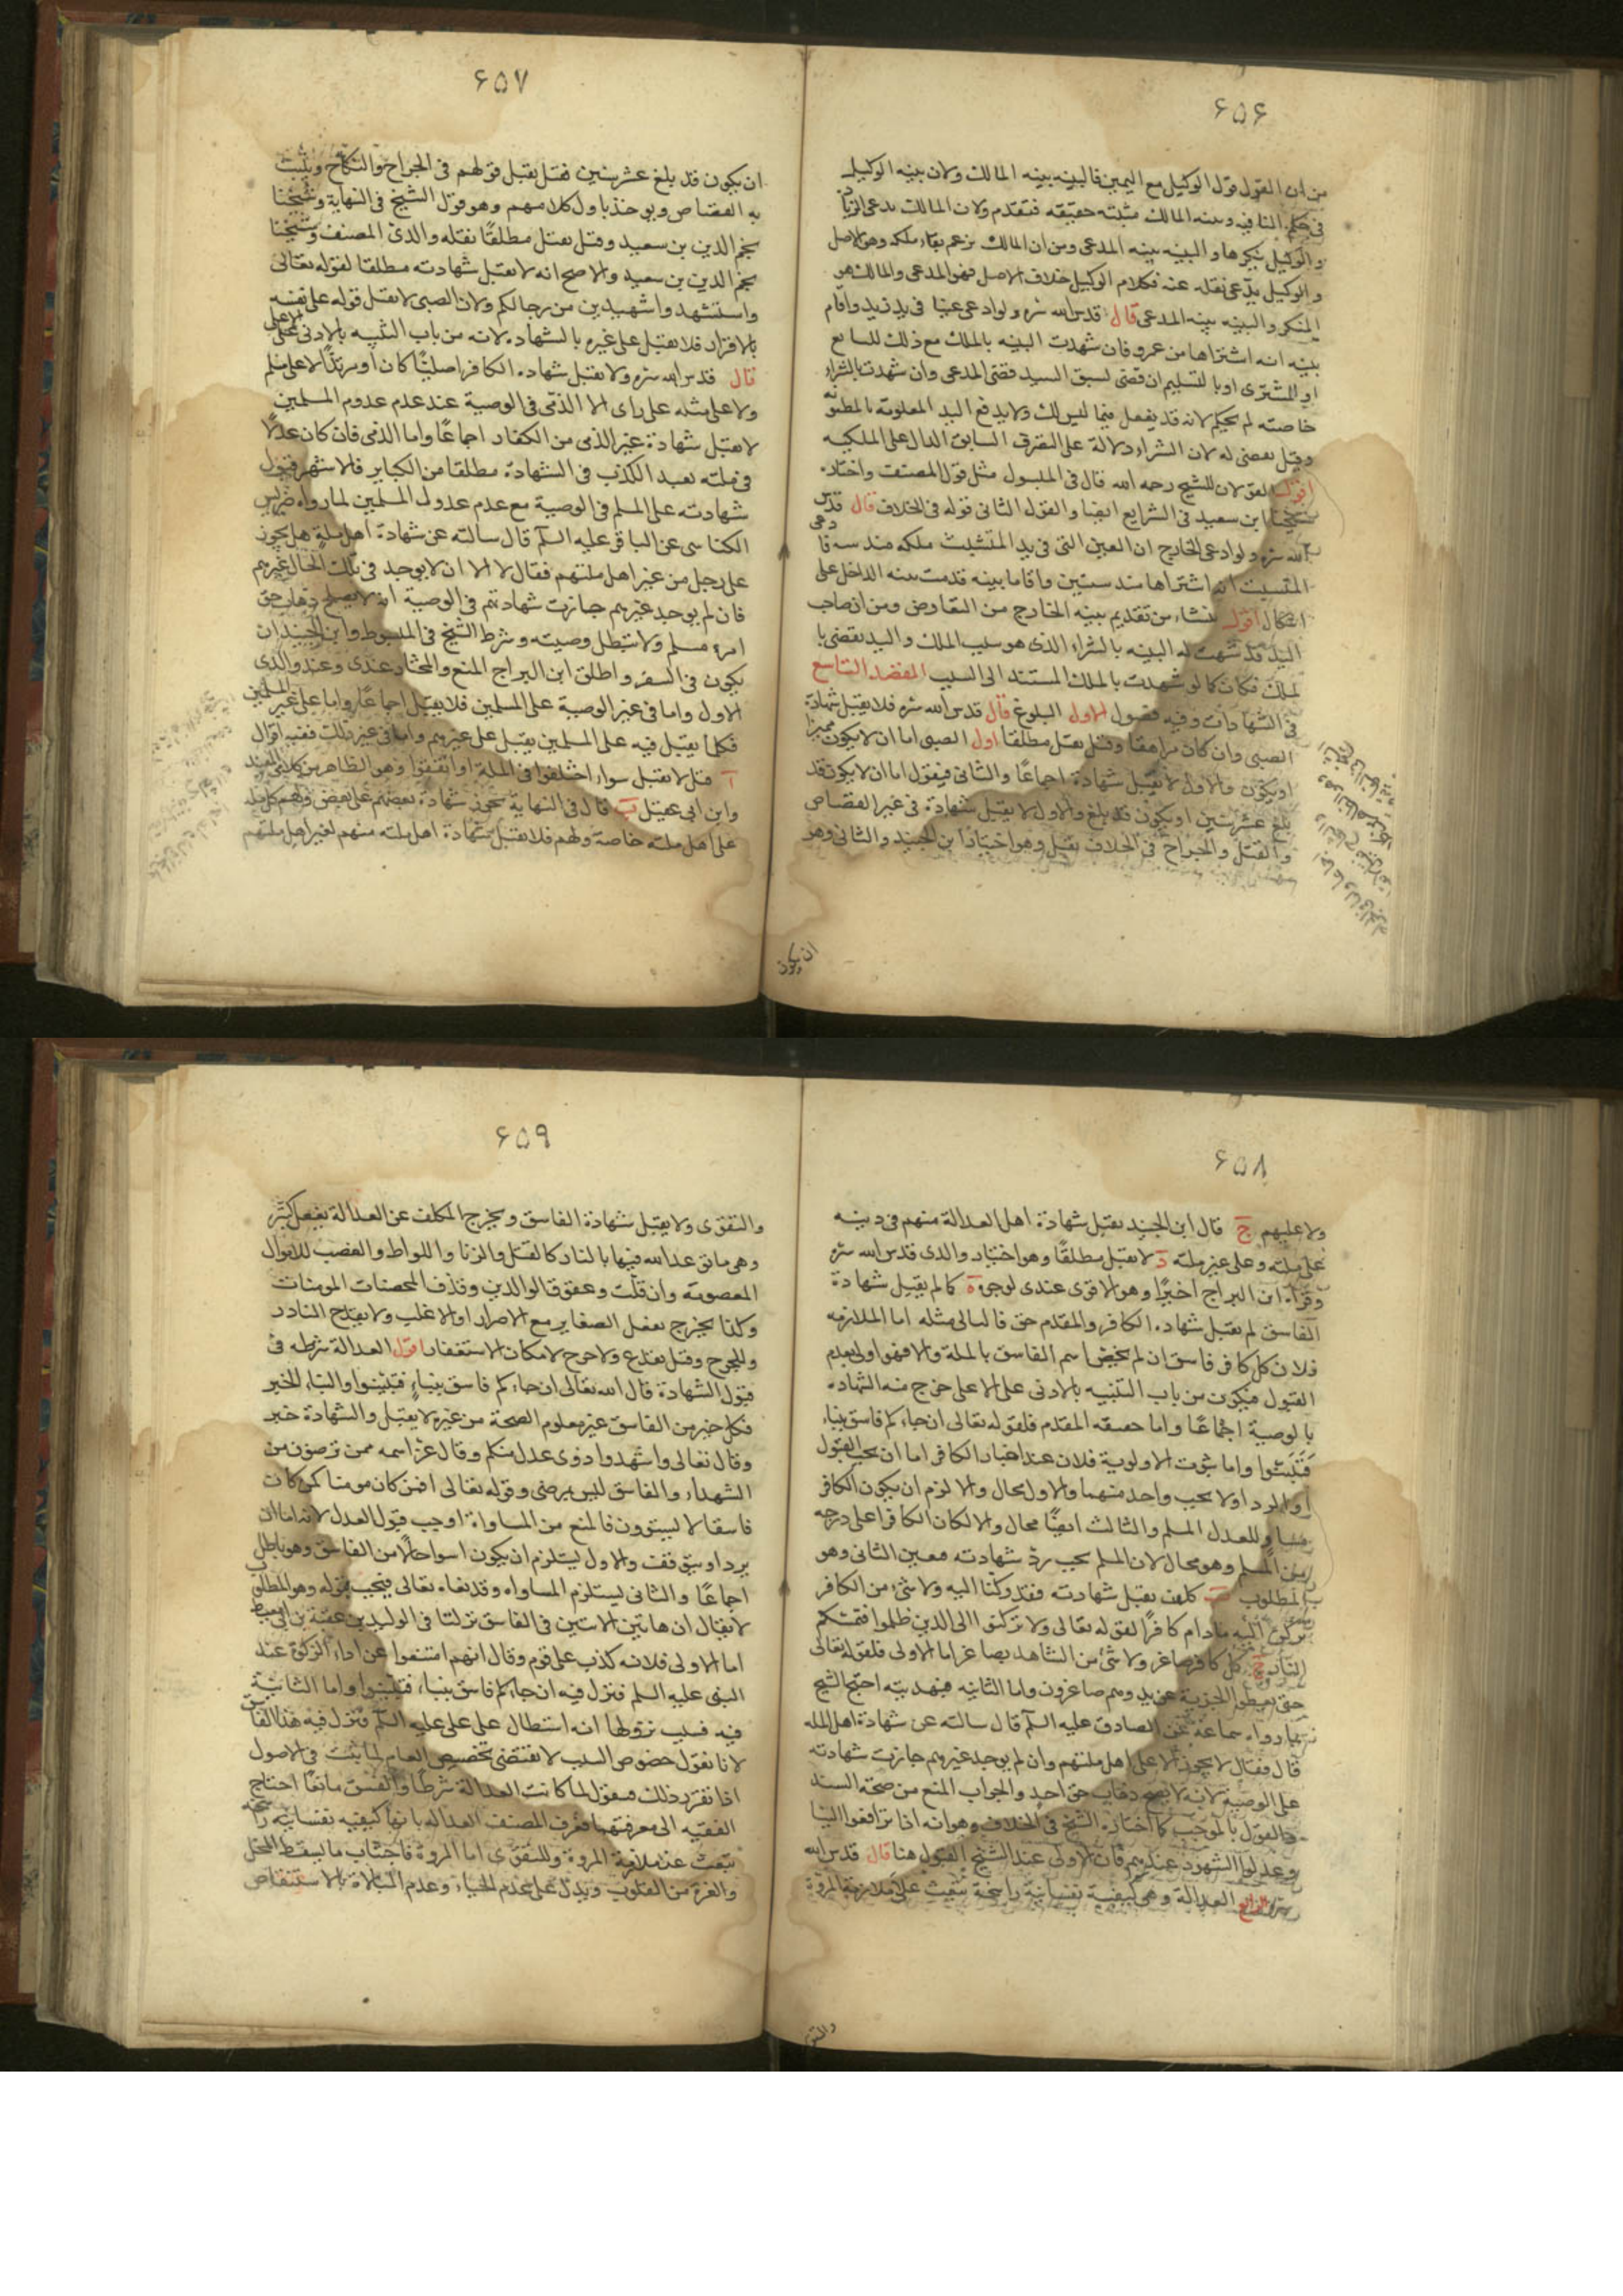 ۶۵۶
من ان القول قول الوكيل مع اليمين فالبينه بينه المالك ولان بينه الوكيل
في حكم النافيه وبينه المالك مثبته حقيقه فتقدم ولان المالك يدعي الزنا
والوكيل ينكرها والبينه بينه المدعي ومن ان المالك يزعم بقاء ملكه وهو الاصل
والوكيل يدعي نقله عنه فكلام الوكيل خلاف الاصل فهو المدعي والمالك هو
المنكر والبينه بينه المدعي قال قدس الله سره ولو ادعى عينا في يد زيد واقام
بينه انه اشتراها من عمرو فان شهدت البينه بالملك مع ذلك للبايع
او للمشتري او بالتسليم ان قضى لسبق اليد قضى المدعي وان شهدت بالشراء
خاصته لم يحكم لانه قد يفعل فيما ليس لك ولا يدفع اليد المعلومة بالمظنونه
وقيل يقضى له لان الشراء دلالة على التصرف السابق الدال على الملكيه
اقول القولان للشيخ رحمه الله قال في المبسوط مثل قول المصنف واختاره
شيخنا ابن سعيد في الشرايع ايضا والقول الثاني قوله في الخلاف قال قدس
الله سره ولو ادعى الخارج ان العين التي في يد المتشبث ملكه منذ سنه فادعى
المتشبث انه اشتراها منذ سنتين واقاما بينه قدمت بينه الداخل على
اشكال اقول ينشاء من تقديم بينه الخارج من التعارض ومن ان صاحب
اليد قد شهدت له البينه بالشراء الذي هو سبب الملك واليد يقضي با
لملك فكان كما لو شهدت بالملك المستند الى السبب المقصد التاسع
في الشهادات وفيه فصول الاول البلوغ قال قدس الله سره فلا يقبل شهادة
الصبي وان كان مراهقا وقيل يقبل مطلقا اول الصبي اما ان لا يكون مميزا
او يكون والاول لا يقبل شهادة اجماعا والثاني فيقول اما ان لا يكون قد
بلغ عشر سنين او يكون قد بلغ والاول لا يقبل شهادة في غير القصاص
والقتل والجراح في الخلاف يقبل وهو اختيار ابن الجنيد والثاني وهو
ان يكون
۶۵۷
ان يكون قد بلغ عشر سنين فقيل يقبل قولهم في الجراح والنكاح ويثبت
به القصاص ويوخذ باول كلامهم وهو قول الشيخ في النهاية وشيخنا
نجم الدين بن سعيد وقيل يقبل مطلقا نقله والدي المصنف وشيخنا
نجم الدين بن سعيد والاصح انه لا يقبل شهادته مطلقا لقوله تعالى
واستشهدوا شهيدين من رجالكم ولان الصبي لا يقبل قوله على نفسه
بالاقرار فلا يقبل على غيره بالشهادة لانه من باب التنبيه بالادنى على الاعلى
قال قدس الله سره ولا يقبل شهادة الكافر اصليا كان او مرتدا لا على مسلم
ولا على مثله على راى الا الذمي في الوصية عند عدم عدول المسلمين
لا يقبل شهادة غير الذمي من الكفار اجماعا واما الذمي فان كان عدلا
في ملته يعيد الكذب في الشهادة مطلقا من الكباير فالاشهر قبول
شهادته على المسلم في الوصية مع عدم عدول المسلمين لما رواه ضريس
الكناسي عن الباقر عليه السلم قال سالته عن شهادة اهل ملة هل يجوز
على رجل من غير اهل ملتهم فقال لا الا ان لا يوجد في تلك الحال غيرهم
فان لم يوجد غيرهم جازت شهادتهم في الوصية انه لا يصلح ذهاب حق
امرء مسلم ولا تبطل وصيته وشرط الشيخ في المبسوط وابن الجنيد ان
يكون في السفر واطلق ابن البراج المنع والمختار عندي وعند والدي
الاول واما في غير الوصية على المسلمين فلا يقبل اجماعا واما على غير المسلمين
فكلما يقبل فيه على المسلمين يقبل على غيرهم واما في غير ذلك ففيه اقوال
آ قيل لا تقبل سواء اختلفوا في الملة او اتفقوا وهو الظاهر من كلام المفيد
وابن ابي عقيل ب قال في النهاية يجوز شهادة بعضهم على بعض ولهم كل ملة
على اهل ملته خاصة ولهم فلا يقبل شهادة اهل ملته منهم لغير اهل ملتهم
۶۵۸
ولا عليهم ج قال ابن الجنيد يقبل شهادة اهل العدالة منهم في دينه
على ملته وعلى غير ملته د لا يقبل مطلقا وهو اختيار والدي قدس الله سره
وقواه ابن البراج اخيرا وهو الاقوى عندي لوجوه كما لم يقبل شهادة
الفاسق لم يقبل شهادة الكافر والمقدم حق فالتالي مثله اما الملازمه
فلان كل كافر فاسق ان لم يخص اسم الفاسق بالملة والا فهو اولى بعدم
القبول فيكون من باب التنبيه بالادنى على الاعلى خرج منه الشهادة
بالوصية اجماعا واما حقيقه المقدم فلقوله تعالى ان جاءكم فاسق بنباء
فتبينوا واما ثبوت الاولوية فلان عند اخبار الكافر اما ان يجب القبول
او الرد او لا يجب واحد منهما والاول محال والا لزم ان يكون الكافر
مساو للعدل المسلم والثالث ايضا محال والا لكان الكافر اعلى درجه
من المسلم وهو محال لان المسلم يجب رد شهادته معين الثاني وهو
المطلوب ب كلما يقبل شهادته فقد ركنا اليه ولا شيء من الكافر
يركن اليه مادام كافرا لقوله تعالى ولا تركنوا الى الذين ظلموا فتمسكم
النار ج كل كافر صاغر ولا شيء من الشاهد بصاغر اما الاولى فلقوله تعالى
حتى يعطوا الجزية عن يد وهم صاغرون واما الثانيه فبديهيه احتج الشيخ
بما رواه سماعة عن الصادق عليه السلم قال سالته عن شهادة اهل الملة
قال فقال لا يجوز الا على اهل ملتهم وان لم يوجد غيرهم جازت شهادته
على الوصية لانه لا يصلح ذهاب حق احد والجواب المنع من صحة السند
والقول بالموجب كما اختاره الشيخ في الخلاف وهو انه اذا ترافعوا الينا
وعدلوا الشهود عندهم فان الاولى عند الشيخ القبول هنا قال قدس الله
سره الرابع العدالة وهي كيفية نفسانية راسخة تبعث على ملازمة المروة
۶۵۹
والتقوى ولا يقبل شهادة الفاسق ويخرج المكلف عن العدالة بفعل كبيرة
وهي ما توعد الله فيها بالنار كالقتل والزنا واللواط والغصب للاموال
المعصومة وان قلت وعقوق الوالدين وقذف المحصنات المومنات
وكذا يخرج بفعل الصغاير مع الاصرار او الاغلب ولا يقدح النادر
وللجرح وقيل يقدح ولا حرج لامكان الاستغفار اقول العدالة شرطه في
قبول الشهادة قال الله تعالى ان جاءكم فاسق بنباء فتبينوا والنباء الخبر
فكل خبر من الفاسق غير معلوم الصحة من غيره لا يقبل والشهادة خبر
وقال تعالى واشهدوا ذوي عدل منكم وقال عز اسمه ممن ترضون من
الشهداء والفاسق ليس بمرضي وقوله تعالى افمن كان مومنا كمن كان
فاسقا لا يستوون فالمنع من المساواة اوجب قبول العدل لانه اما ان
يرد او يتوقف والاول يستلزم ان يكون اسوا حالا من الفاسق وهو باطل
اجماعا والثاني يستلزم المساواه وقد نفاه تعالى فيجب قبوله وهو المطلوب
لا يقال ان هاتين الايتين في الفاسق نزلتا في الوليد بن عقبة بن ابي معيط
اما الاولى فلانه كذب على قوم وقال انهم امتنعوا عن اداء الزكوة عند
النبي عليه السلم فنزل فيه ان جاءكم فاسق بنباء فتبينوا واما الثانية
فيه فسبب نزولها انه استطال على علي عليه السلم فنزل فيه هذا الفاسق
لانا نقول خصوص السبب لا يقتضي تخصيص العام لما ثبت في الاصول
اذا تقرر ذلك فنقول لما كانت العدالة شرطا والفسق مانعا احتاج
الفقيه الى معرفتهما فعرف المصنف العداله بانها كيفيه نفسانيه راسخة
تبعث عن ملازمة المروة وللتقوى اما المروة فاجتناب ما يسقط المحل
والعزة من القلوب ويدل على عدم الحياء وعدم المبالاة بالاستنقاص